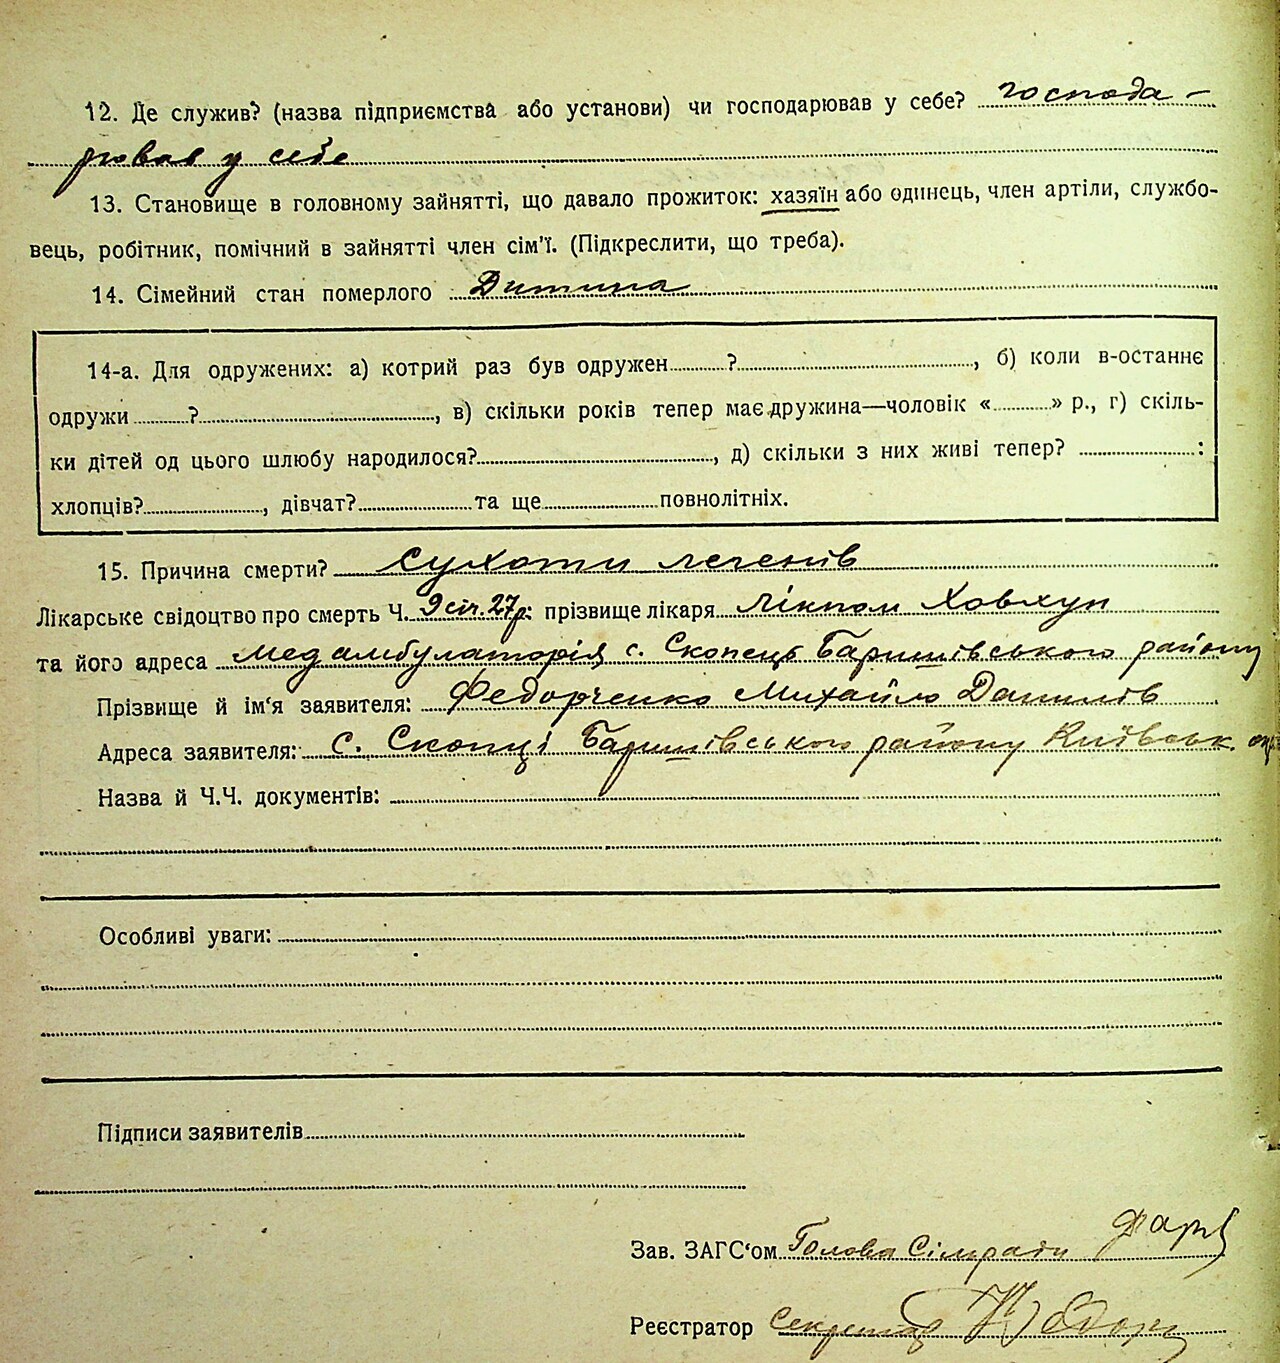 12. Де служив? (назва підприємства або установи) чи господарював у себе? господа-
рював у себе
13. Становище в головному зайнятті, що давало прожиток: хазяїн або одинець, член артіли, службо-
вець, робітник, помічний в зайнятті член сім'ї. (Підкреслити, що треба).
14. Сімейний стан померлого Дитина
14-а. Для одружених: а) котрий раз був одружен ? , б) коли в-останнє
одружи ? , в) скільки років тепер має дружина—чоловік « » р., г) скіль-
ки дітей од цього шлюбу народилося? , д) скільки з них живі тепер? :
хлопців? , дівчат? та ще повнолітніх.
15. Причина смерти? Сухоти легенів
Лікарське свідоцтво про смерть Ч. 9 січ. 27 р. прізвище лікаря Лікпом Ховхун
та його адреса Медамбулаторія с. Скопець Баришівського району
Прізвище й ім'я заявителя: Федорченко Михайло Данилів
Адреса заявителя: с. Скопці Баришівського району Київськ. окр
Назва й Ч.Ч. документів:
Особливі уваги:
Підписи заявителів
Зав. ЗАГС'ом Голова Сільради
Реєстратор Секретар